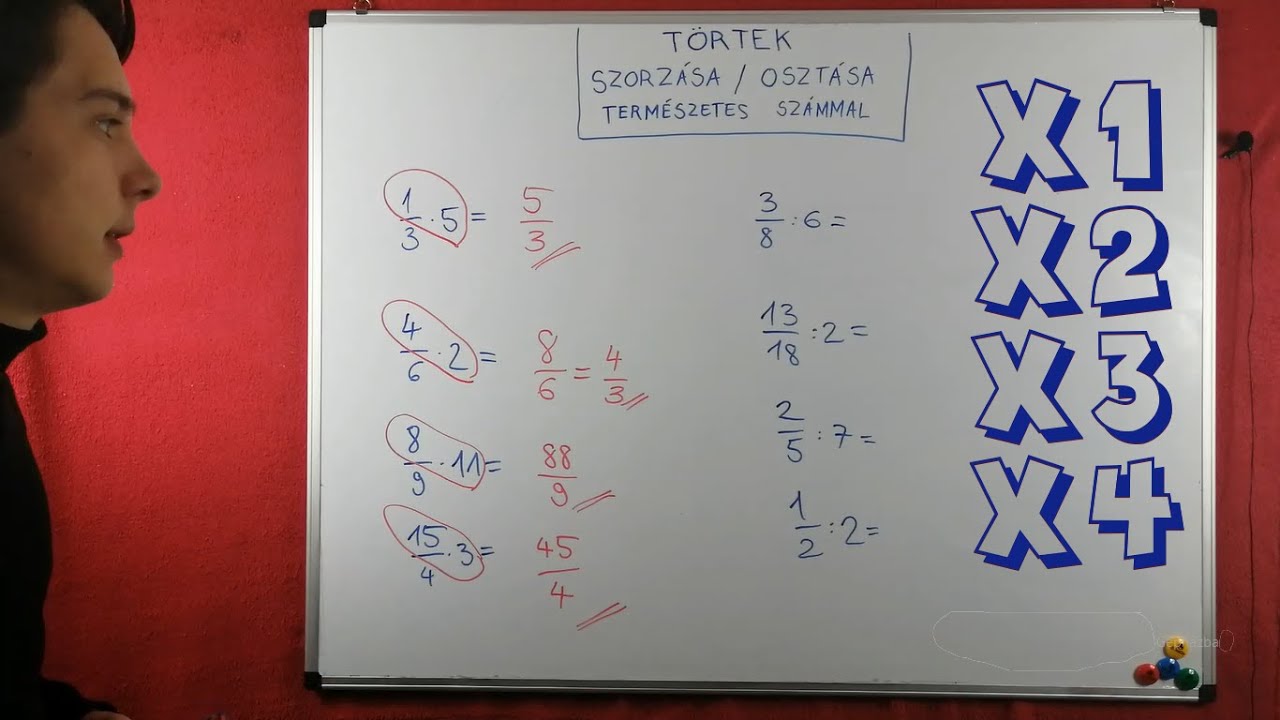 TÖRTEK
SZORZÁSA / OSZTÁSA
TERMÉSZETES SZÁMMAL
1/3 · 5 = 5/3
4/6 · 2 = 8/6 = 4/3
8/9 · 11 = 88/9
15/4 · 3 = 45/4
3/8 : 6 =
13/18 : 2 =
2/5 : 7 =
1/2 : 2 =
X 1
X 2
X 3
X 4